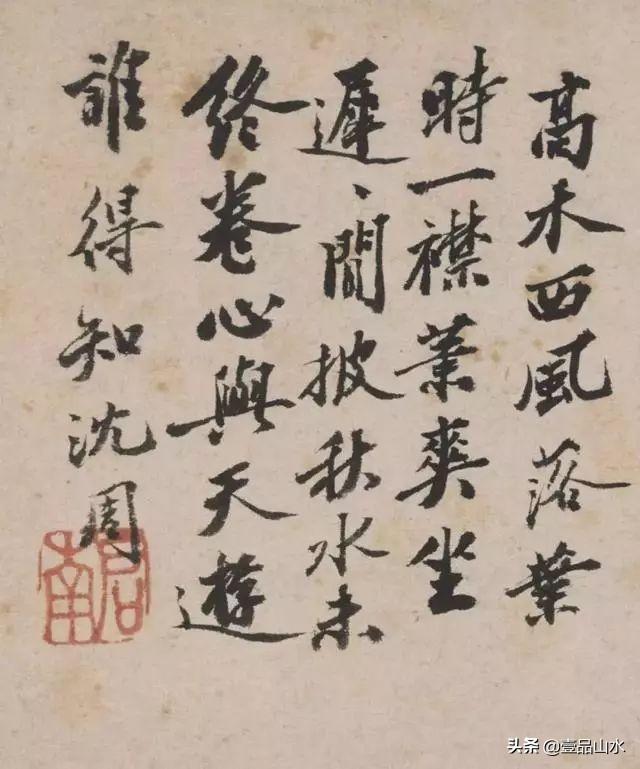 高木西風落葉
時一襟蕭爽坐
遲〻閒披秋水未
終卷心與天遊
誰得知沈周
啟南
頭条 @壹品山水